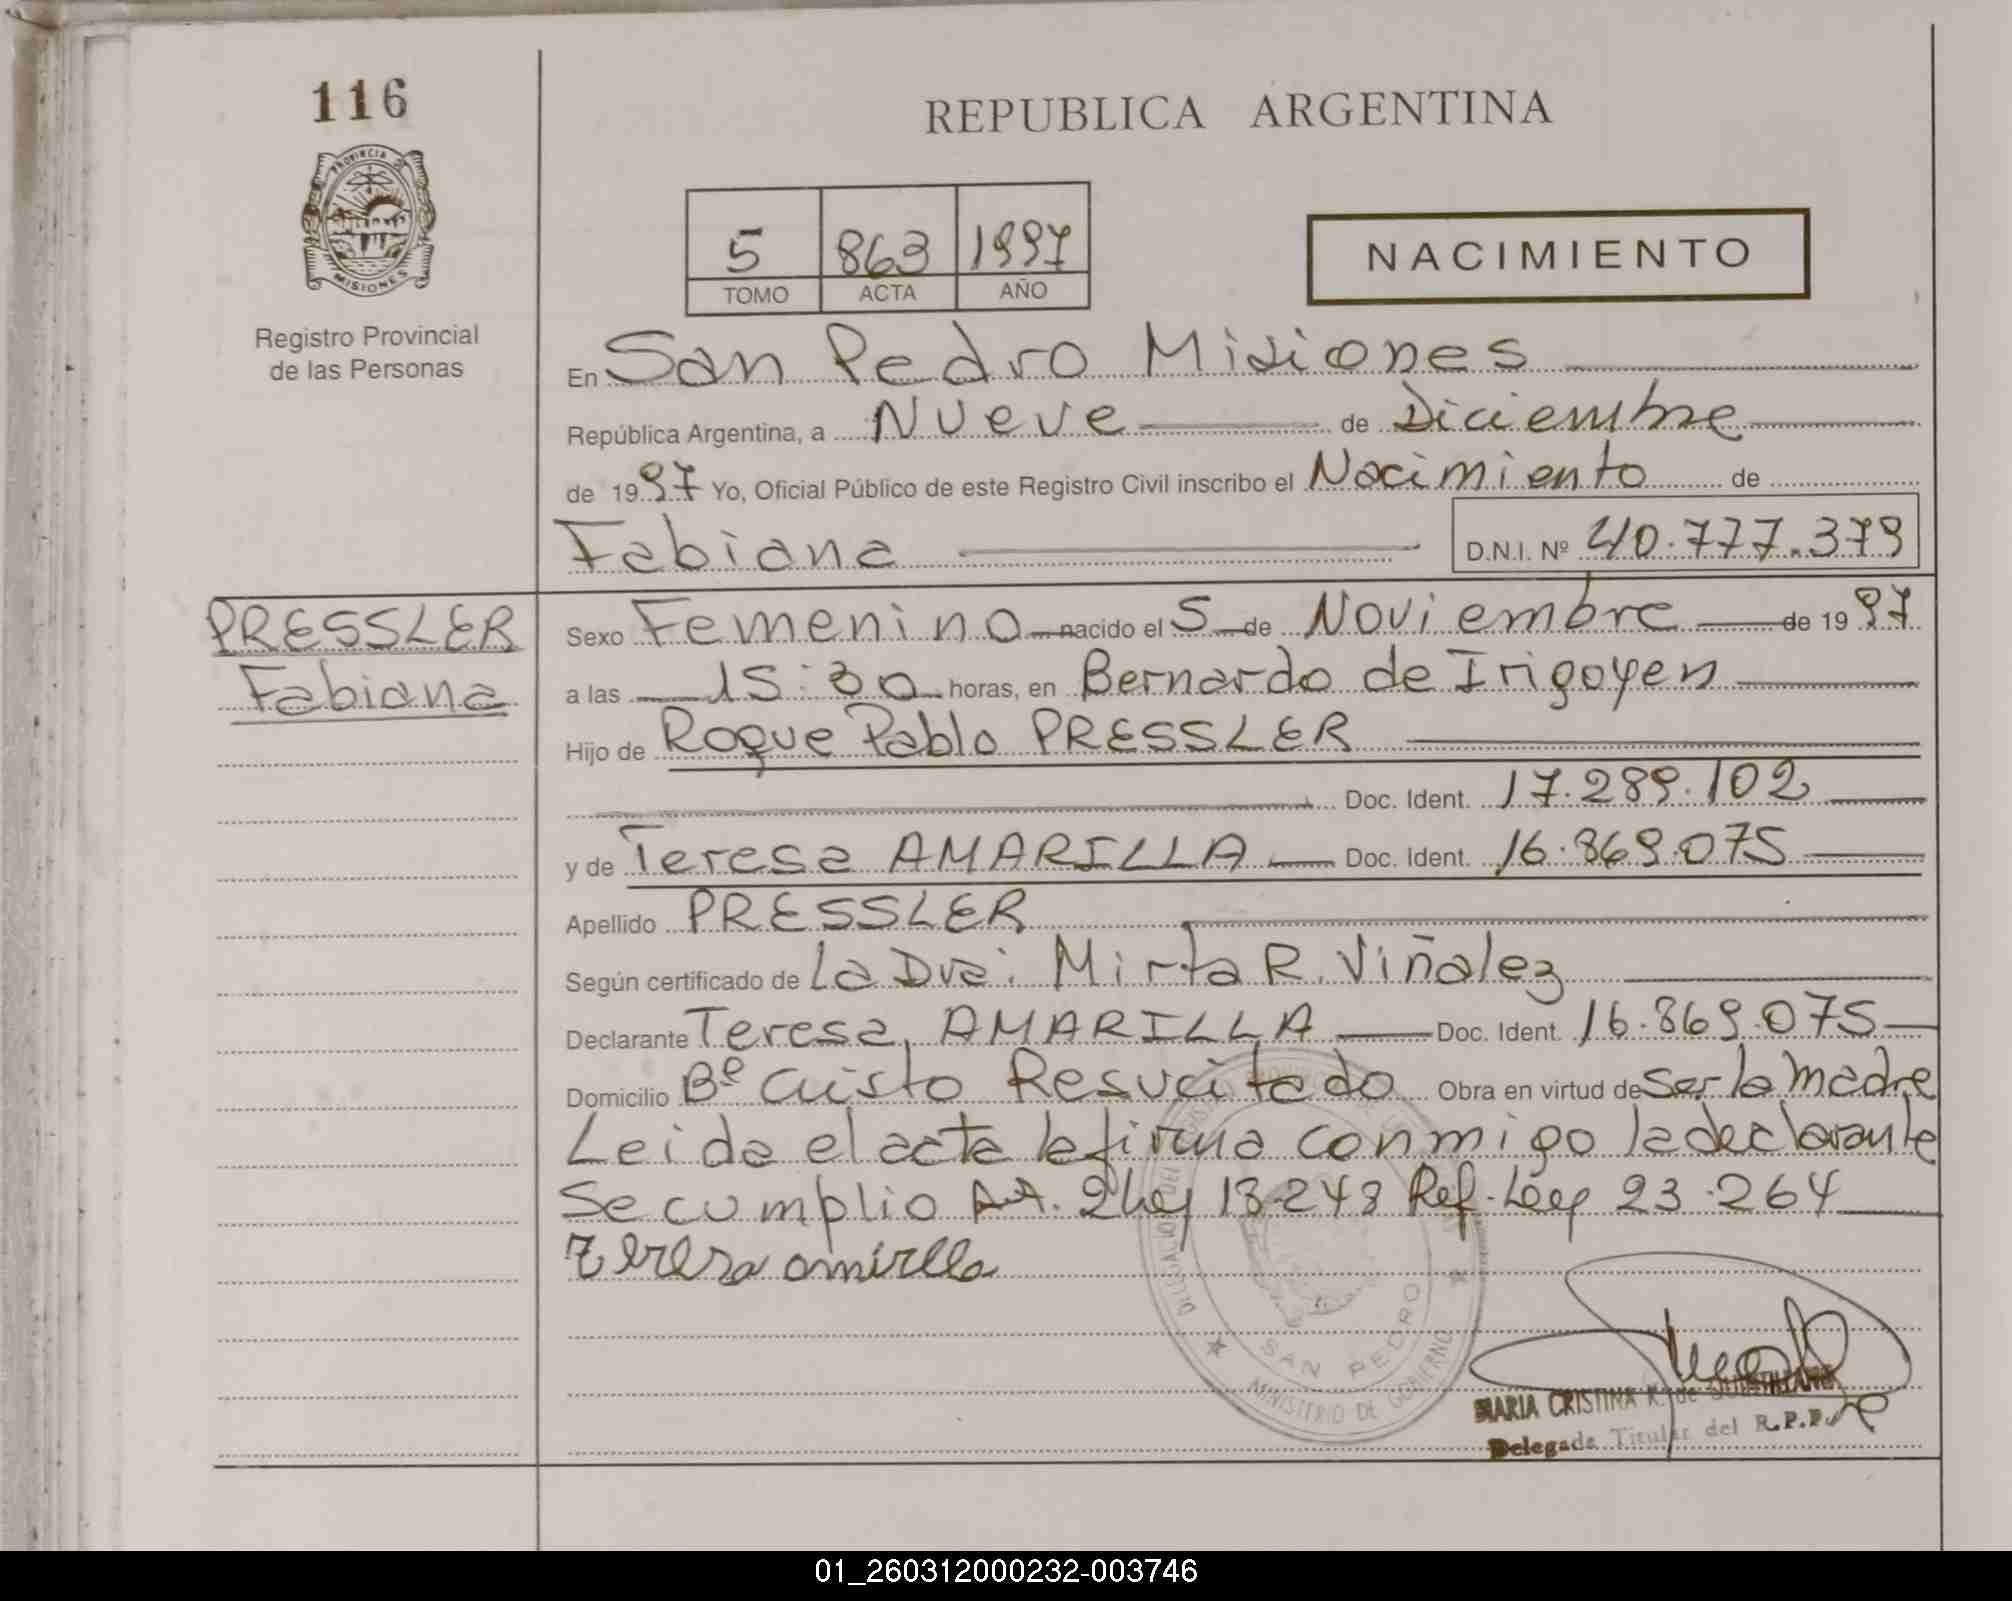 116
PROVINCIA
MISIONES
Registro Provincial
de las Personas
REPUBLICA ARGENTINA
5 863 1997
TOMO ACTA AÑO
NACIMIENTO
En San Pedro Misiones
República Argentina, a Nueve de Diciembre
de 1997 Yo, Oficial Público de este Registro Civil inscribo el Nacimiento de
Fabiana D.N.I. Nº 40.777.379
PRESSLER
Fabiana
Sexo Femenino nacido el 5 de Noviembre de 1997
a las 15:30 horas, en Bernardo de Irigoyen
Hijo de Roque Pablo PRESSLER
Doc. Ident. 17.289.102
y de Teresa AMARILLA Doc. Ident. 16.869.075
Apellido PRESSLER
Según certificado de La Dra. Mirta R. Viñalez
Declarante Teresa AMARILLA Doc. Ident. 16.869.075
Domicilio Bº Cristo Resucitado Obra en virtud de Ser la madre
Leida el acta la firma conmigo la declarante
Se cumplio Art. 2 Ley 13.248 Ref. Ley 23.264
Teresa amirella
SAN PEDRO
MINISTERIO DE GOBIERNO
MARIA CRISTINA K. de
Delegada Titular del R.P.P.
01_260312000232-003746